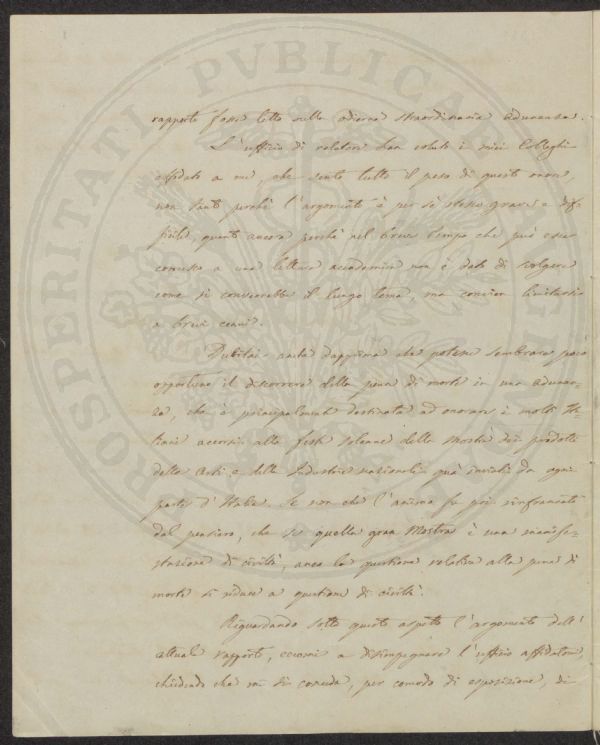 rapporto fosse letto nella odierna straordinaria adunanza.
L'ufficio di relatore han voluto i miei Colleghi
affidato a me, che sento tutto il peso di questo onore,
non tanto perchè l'argomento è per sè stesso grave e dif-
ficile, quanto ancora perchè nel breve tempo che può esser
concesso a una lettura accademica non è dato di svolgere
come si converrebbe il lungo tema, ma convien limitarsi
a brevi cenni.
Dubitai anche dapprima che potesse sembrare poco
opportuno il discorrere della pena di morte in una adunan-
za, che è principalmente destinata ad onorare i molti Ita-
liani accorsi alla festa solenne della Mostra dei prodotti
delle Arti e delle Industrie nazionali quà inviati da ogni
parte d'Italia. Se non che l'animo fu poi rinfrancato
dal pensiero, che se quella gran Mostra è una manife-
stazione di civiltà, anco la questione relativa alla pena di
morte si riduce a questione di civiltà.
Riguardando sotto questo aspetto l'argomento dell'
attual rapporto, eccomi a disimpegnare l'ufficio affidatomi,
chiedendo che mi sia concesso, per comodo di esposizione, di
PROSPERITATI PVBLICAE AVGENDAE